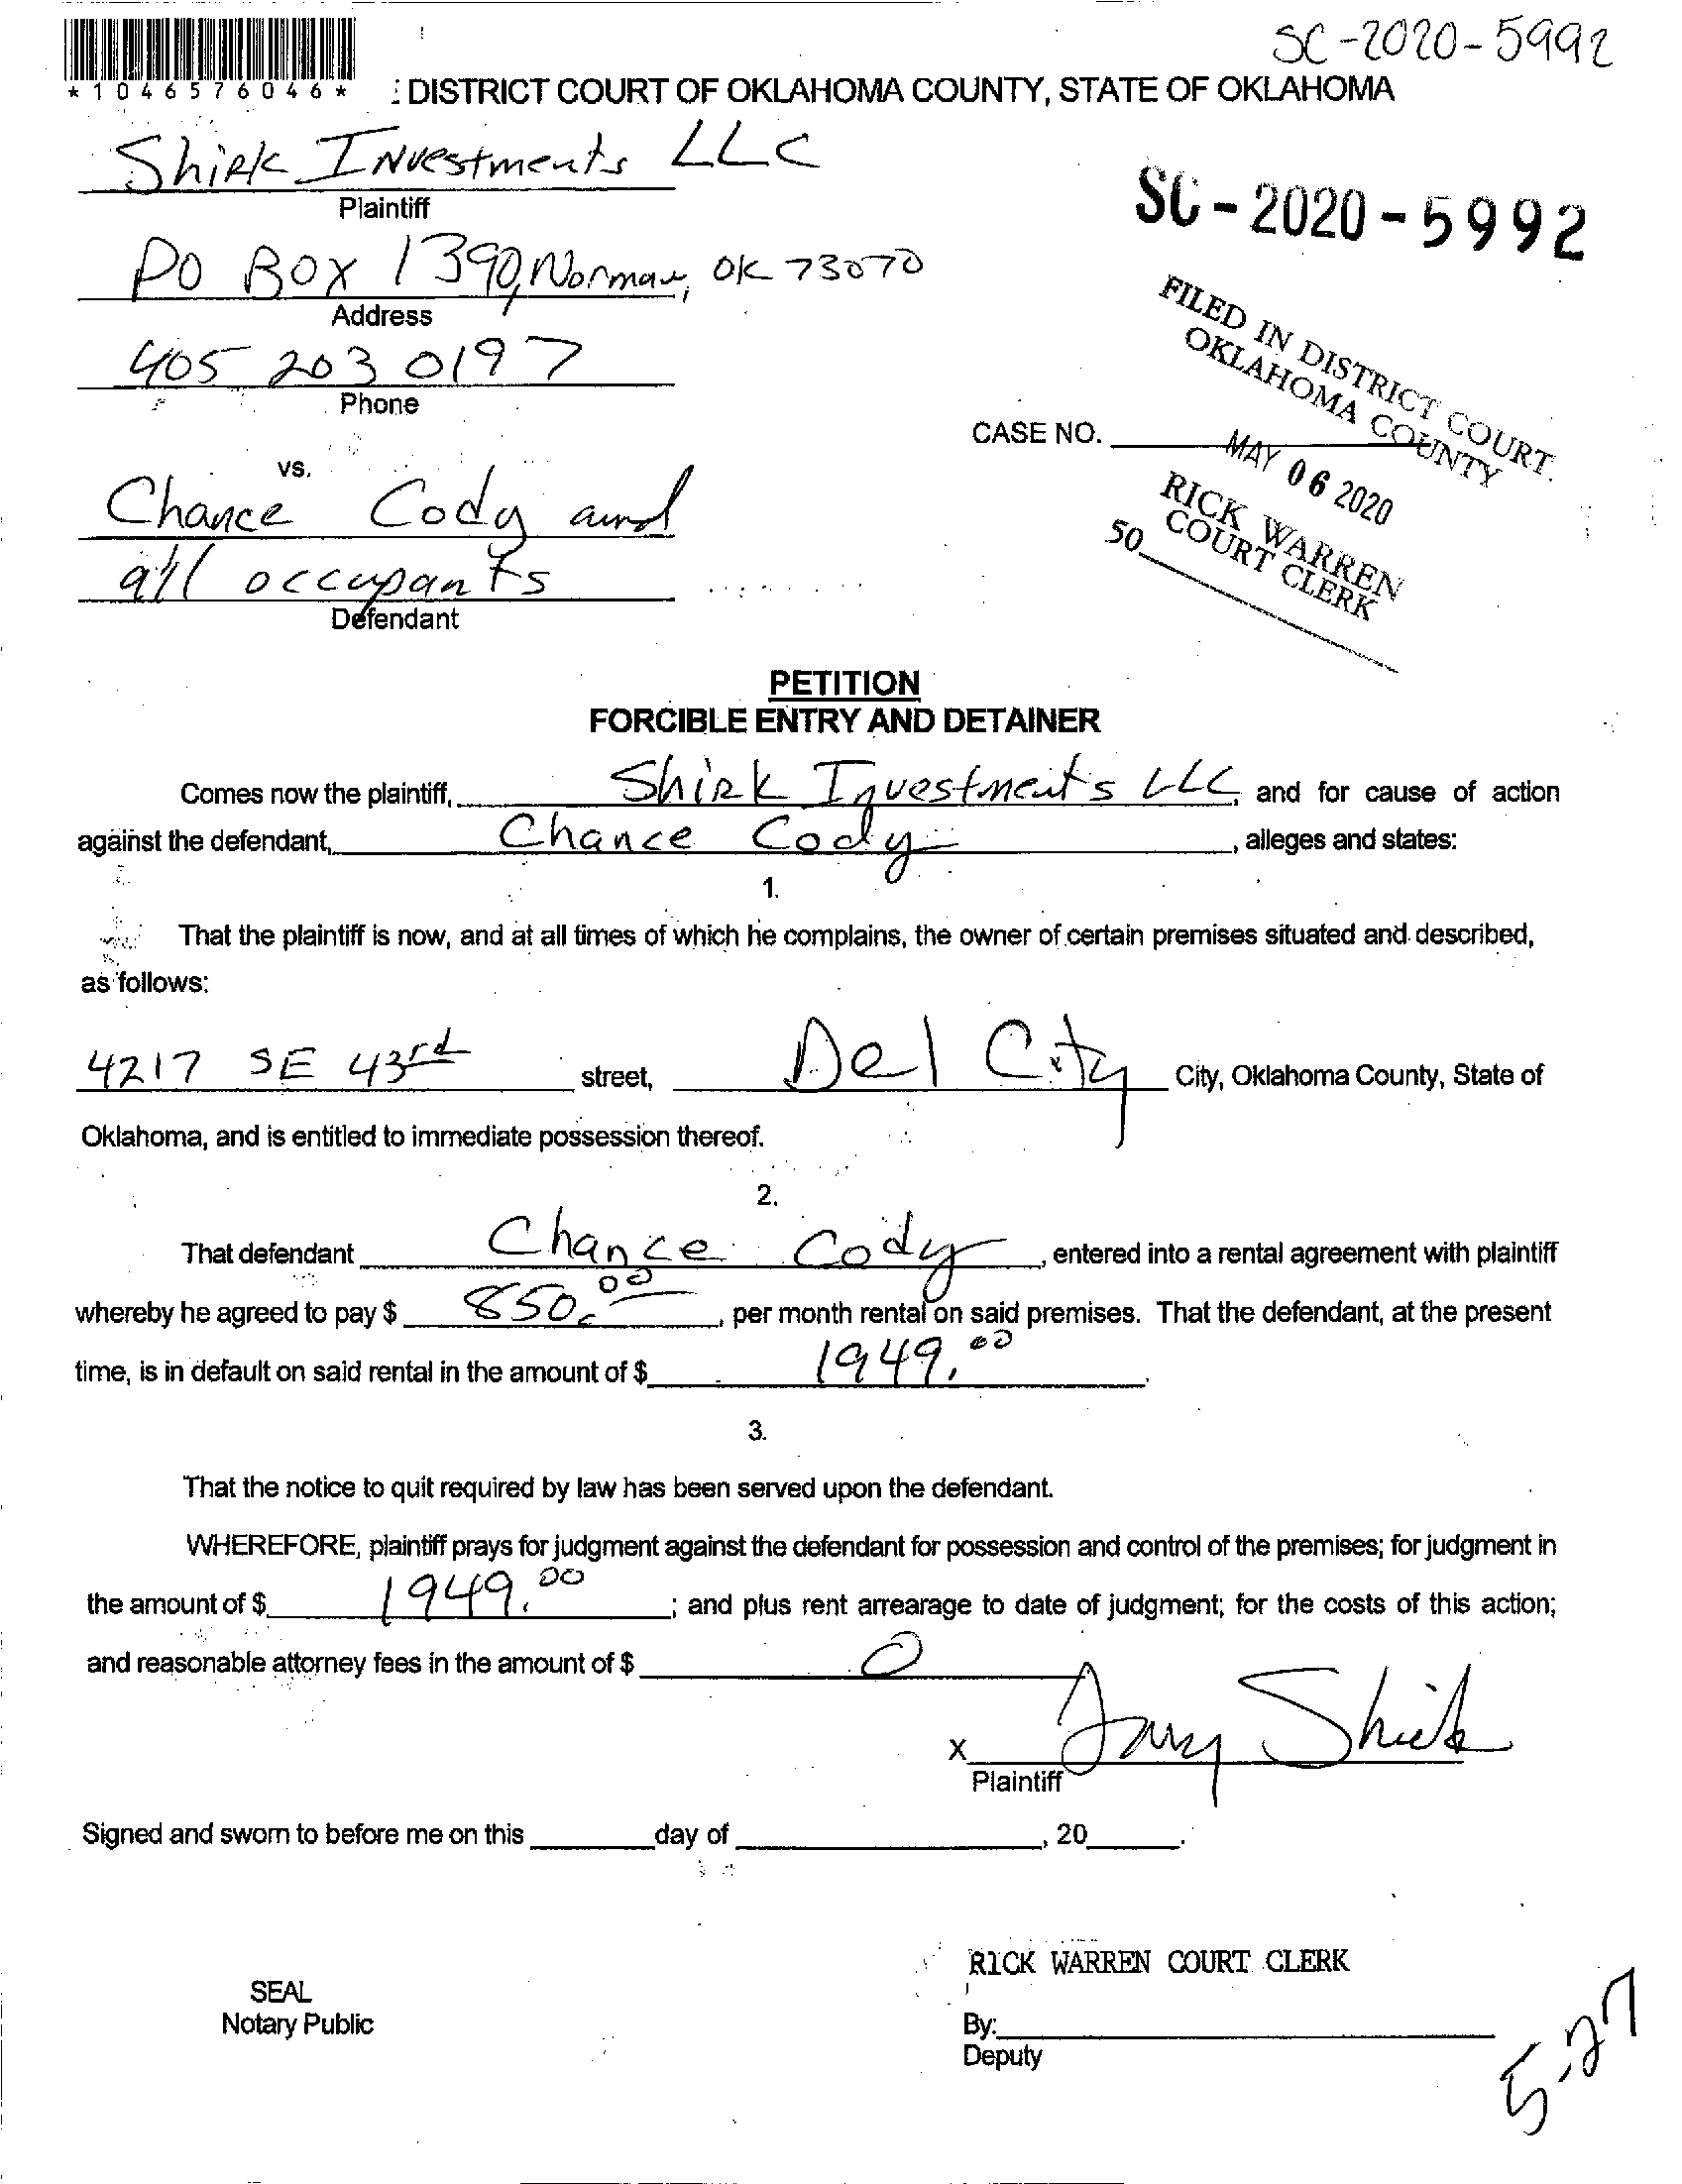 SC-2020-5992
*1046576046*
: DISTRICT COURT OF OKLAHOMA COUNTY, STATE OF OKLAHOMA
Shirk Investments LLC
Plaintiff
SC-2020-5992
PO BOX 1390, Norman, OK 73070
Address
FILED IN DISTRICT COURT
OKLAHOMA COUNTY
405 203 0197
Phone
CASE NO.
MAY 06 2020
vs.
RICK WARREN
COURT CLERK
50
Chance Cody and
all occupants
Defendant
PETITION
FORCIBLE ENTRY AND DETAINER
Comes now the plaintiff, Shirk Investments LLC, and for cause of action
against the defendant, Chance Cody, alleges and states:
1.
That the plaintiff is now, and at all times of which he complains, the owner of certain premises situated and described,
as follows:
4217 SE 43rd street, Del City City, Oklahoma County, State of
Oklahoma, and is entitled to immediate possession thereof.
2.
That defendant Chance Cody, entered into a rental agreement with plaintiff
whereby he agreed to pay $ 850.00, per month rental on said premises. That the defendant, at the present
time, is in default on said rental in the amount of $ 1949.00.
3.
That the notice to quit required by law has been served upon the defendant.
WHEREFORE, plaintiff prays for judgment against the defendant for possession and control of the premises; for judgment in
the amount of $ 1949.00; and plus rent arrearage to date of judgment; for the costs of this action;
and reasonable attorney fees in the amount of $ 0
X Shirk
Plaintiff
Signed and sworn to before me on this day of , 20 .
RICK WARREN COURT CLERK
SEAL
Notary Public
By:
Deputy
5-27